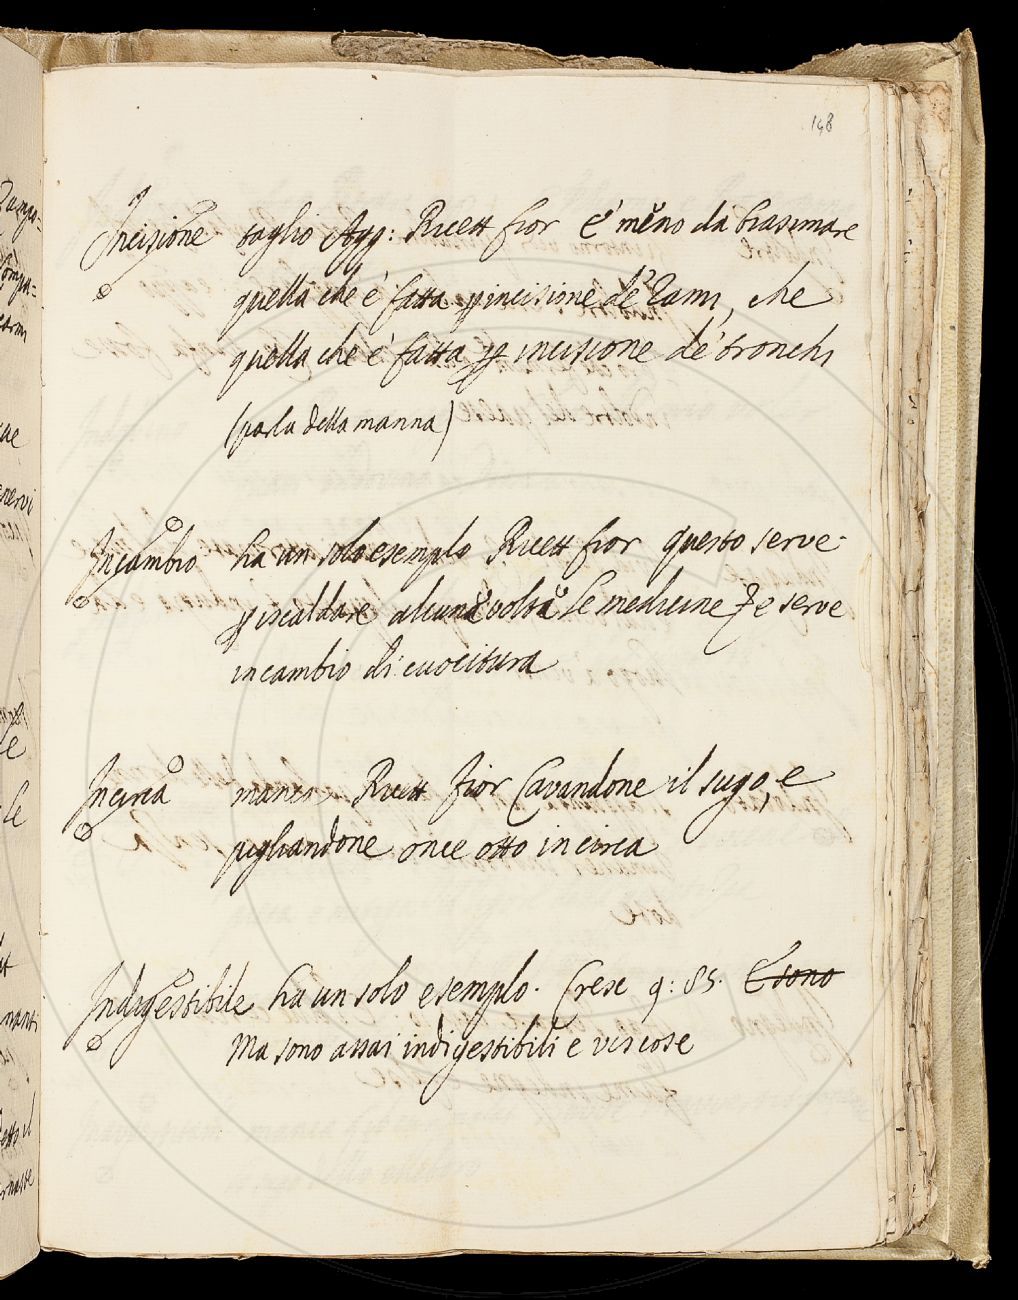 148
Incisione taglio Agg: Ricett fior E' meno da biasimare
quella che è fatta p incisione de' Rami, che
quella che è fatta p incisione de' tronchi
(parla della manna)
Incambio ha un solo esemplo Ricett fior questo serve
p iscaldare alcuna volta le medicine, e serve
incambio di cuocitura
Incirca manca Ricett fior Cavandone il sugo, e
pigliandone once otto incirca
Indigestibile ha un solo esemplo. Cresc 9: 85. E sono
Ma sono assai indigestibili e viscose